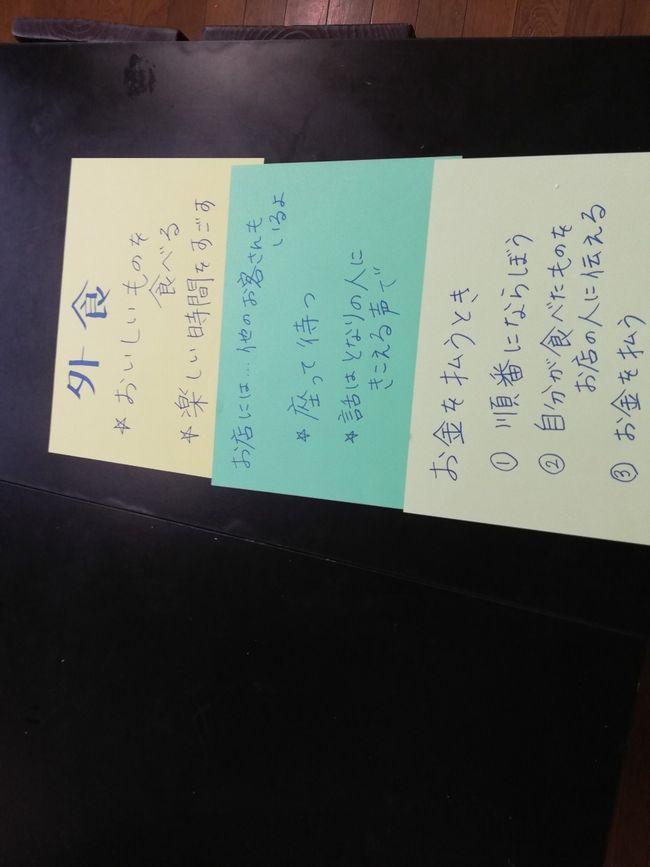 外食
☆おいしいものを
食べる
☆楽しい時間をすごす
お店には…他のお客さんも
いるよ
☆座って待つ
☆話はとなりの人に
きこえる声で
お金を払うとき
① 順番にならぼう
② 自分が食べたものを
お店の人に伝える
③ お金を払う